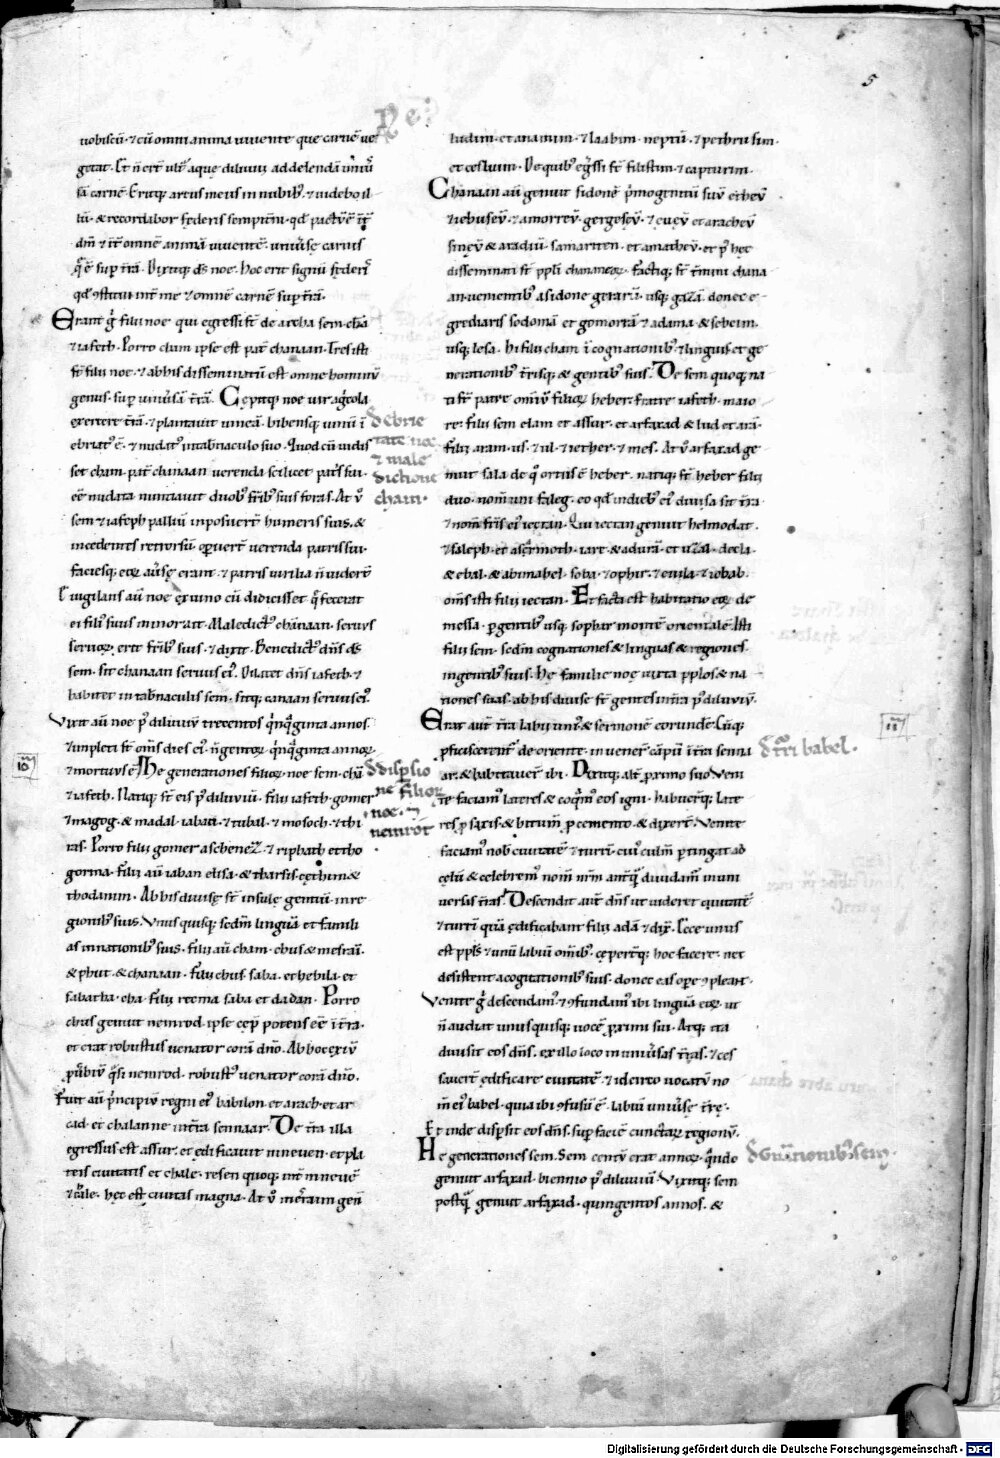 5
uobiscū · ⁊ cū omni anima uiuente que carnē ue
getat. Et ñ erūt ultͣ aque diluuii ad delendā uniū
sā carnē. Eritq; arcus meus in nubibꝰ · ⁊ uidebo il
lū · & recordabor federis sempitnī · qd pactū ē int
dm̄ ⁊ int omnē animā uiuentē · uniuse carnis
q̄ ē sup trā. Dixitq; ds noe. hoc erit signū federis
qd ꝯstitui int me ⁊ omnē carnē sup trā.
Erant g̊ filii noe qui egressi st̄ de archa sem · chā
⁊ iafeth. Porro cham ipse est pat chanaan. Tres isti
st̄ filii noe · ⁊ ab his disseminatū est omne hominū
genus · sup uniūsā trā. Cepitq; noe uir agcola
exercere trā · ⁊ plantauit uineā · bibensq; uinū ī
ebriatꝰ ē · ⁊ nudatꝰ in tabnaculo suo. Quod cū uidis
set cham · pat chanaan uerenda scilicet patris sui ·
eē nudata nunciauit duobꝰ fribꝰ suis foras. At ū
sem ⁊ iafeph palliū inposuert humeris suis · &
incedentes retrorsū opuert uerenda patris sui ·
faciesq; eoꝝ ause erant · ⁊ patris uirilia ñ uiderē
Euigilans aū noe ex uino cū didicisset q̄ fecerat
ei filiꝰ suus minor ait. Maledictꝰ chanaan · seruus
seruoꝝ erit fribꝰ suis · ⁊ dixit. Benedictꝰ dn̄s ds
sem · sit chanaan seruus eiꝰ. Dilatet dn̄s iafeth · ⁊
habitet in tabnaculis sem · sitq; canaan seruus eiꝰ.
Vixit aū noe p diluuiū trecentos qnqginta annos.
⁊ inpleti st̄ oms dies eiꝰ · ngentoꝝ · qnqginta annoꝝ
⁊ mortuus ē. He generationes filioꝝ noe sem · chā
⁊ iafeth. Natiq; st̄ eis p diluuiū · filii iafeth · gomer
⁊ magog · & madai · iaban · ⁊ tubal · ⁊ mosoch · ⁊ thi
ras. Porro filii gomer aschenez · ⁊ riphath et tho
gorma · filii aū iaban elisa · & tharsis · cethim &
thodanim. Ab his diuise st̄ insule gentiū · in re
gionibꝰ suis. Vnus quisq; sedm linguā et famili
as in nationibꝰ suis · filii aū cham · chus & mesrai ·
& phut · & chanaan · filii chus saba · et hebila · et
sabatha · filii regma saba et dadan. Porro
chus genuit nemrod · ipse cepit potens eē ī tra ·
et erat robustus uenator corā dno. Ab hoc exiū
puerbiū qsi nemrod · robustꝰ uenator corā dno.
Fuit aū principiū regni eiꝰ babilon et arach · et ar
cad · et chalanne in tra sennaar. De tra illa
egressus est assur · et edificauit nineuen · et pla
teis ciuitatis et chale · resen quoq; int nineuē
⁊ chale · hec est ciuitas magna · At ū meraim gen
de ebrie
tate noe
⁊ male
dictione
cham ·
de disp̄sio
ne filioꝝ
noe · ⁊
nemrot
10
ludim · et anamim · ⁊ laabim · neptū · ⁊ pethrusim ·
et cesluim · De quibꝰ egssi st̄ filistim · ⁊ capturim ·
Chanaan aū genuit sidonē pmogenitū suū etheū
⁊ iebuseū · ⁊ amorreū · gergeseū · ⁊ eueū et aracheū
sineū & aradiū · samariten · et amatheū · et p hec
disseminati st̄ ppli chananeoꝝ · factiq; st̄ tmini chana
an · uenientibꝰ a sidone gerarā · usq; gazā · donec e
grediaris sodomā et gomorrā ⁊ adama & seboim ·
usq; lesa. Hi filii cham ī cognationibꝰ ⁊ linguis et ge
nerationibꝰ trisq; & gentibꝰ suis. De sem quoq; na
ti st̄ patre omiū filioꝝ heber · fratre iafeth · maio
re · filii sem elam et assur · et arfaxad & lud et arā ·
filii aram · us · ⁊ ul · ⁊ iether · ⁊ mes. At ū arfaxad ge
nuit sala de q̊ ortus ē heber. natiq; st̄ heber filii
duo · nom uni faleg · eo qd in diebꝰ eiꝰ diuisa sit tra
⁊ nom fris eiꝰ iectan. Qui iectan genuit helmodat ·
⁊ saleph · et asermoth · iare & adurā · et uzal · decla
& ebal · & abimahel · soba · ⁊ ophir · ⁊ euila · ⁊ iobab.
oms isti filii iectan. Et facta est habitatio eoꝝ de
messa · pgentibꝰ usq; sophar montē orientalē. Isti
filii sem · sedm cognationes & linguas & regiones
in gentibꝰ suis. He familie noe iuxta pplos & na
tiones suas · ab his diuise st̄ gentes in tra p diluuiū.
Erat aut tra labii uniꝰ & sermonē eorunde. Cūq;
pficiscerent de oriente · inuenert cāpū ī tra senna
ar · & habitauert ibi. Dixitq; alt pximo suo Veni
te faciamꝰ lateres & coqmꝰ eos igni · habuertq; late
res p saxis · & bitum p cemento · & dixert. Venite
faciamꝰ nob ciuitatē ⁊ turrī · cuiꝰ culm ptingat ad
celū & celebremꝰ nom nrm ante q̄ diuidamꝰ in uni
uersis tras. Descendit aut dns ut uideret ciuitatē
⁊ turrī quā edificabant filii adā ⁊ dix̄. Ecce unus
est ppls ⁊ unū labiū omibꝰ · ceperutq; hoc facere · nec
desistent a cogitationibꝰ suis · donec eas ope ꝯpleant ·
Venite g̊ descendamꝰ ⁊ ꝯfundamꝰ ibi linguā eoꝝ · ut
ñ audiat unus quisq; uocē pximi sui. Atq; ita
diuisit eos dns · ex illo loco in uniūsas tras · ⁊ ces
sauert edificare ciuitatē · ⁊ idcirco uocatū no
m eiꝰ babel · quia ibi ꝯfusū ē · labiū uniuse tre ·
Et inde dispsit eos dns · sup faciē cunctaꝝ regionū.
He generationes sem. Sem centū erat annoꝝ · qndo
genuit arfaxad · biennio p diluuiū. Vixitq; sem
postq̄ genuit arfaxad · quingentos annos · &
11
de turri babel ·
de gnationibꝰ sem ·
Digitalisierung gefördert durch die Deutsche Forschungsgemeinschaft - DFG